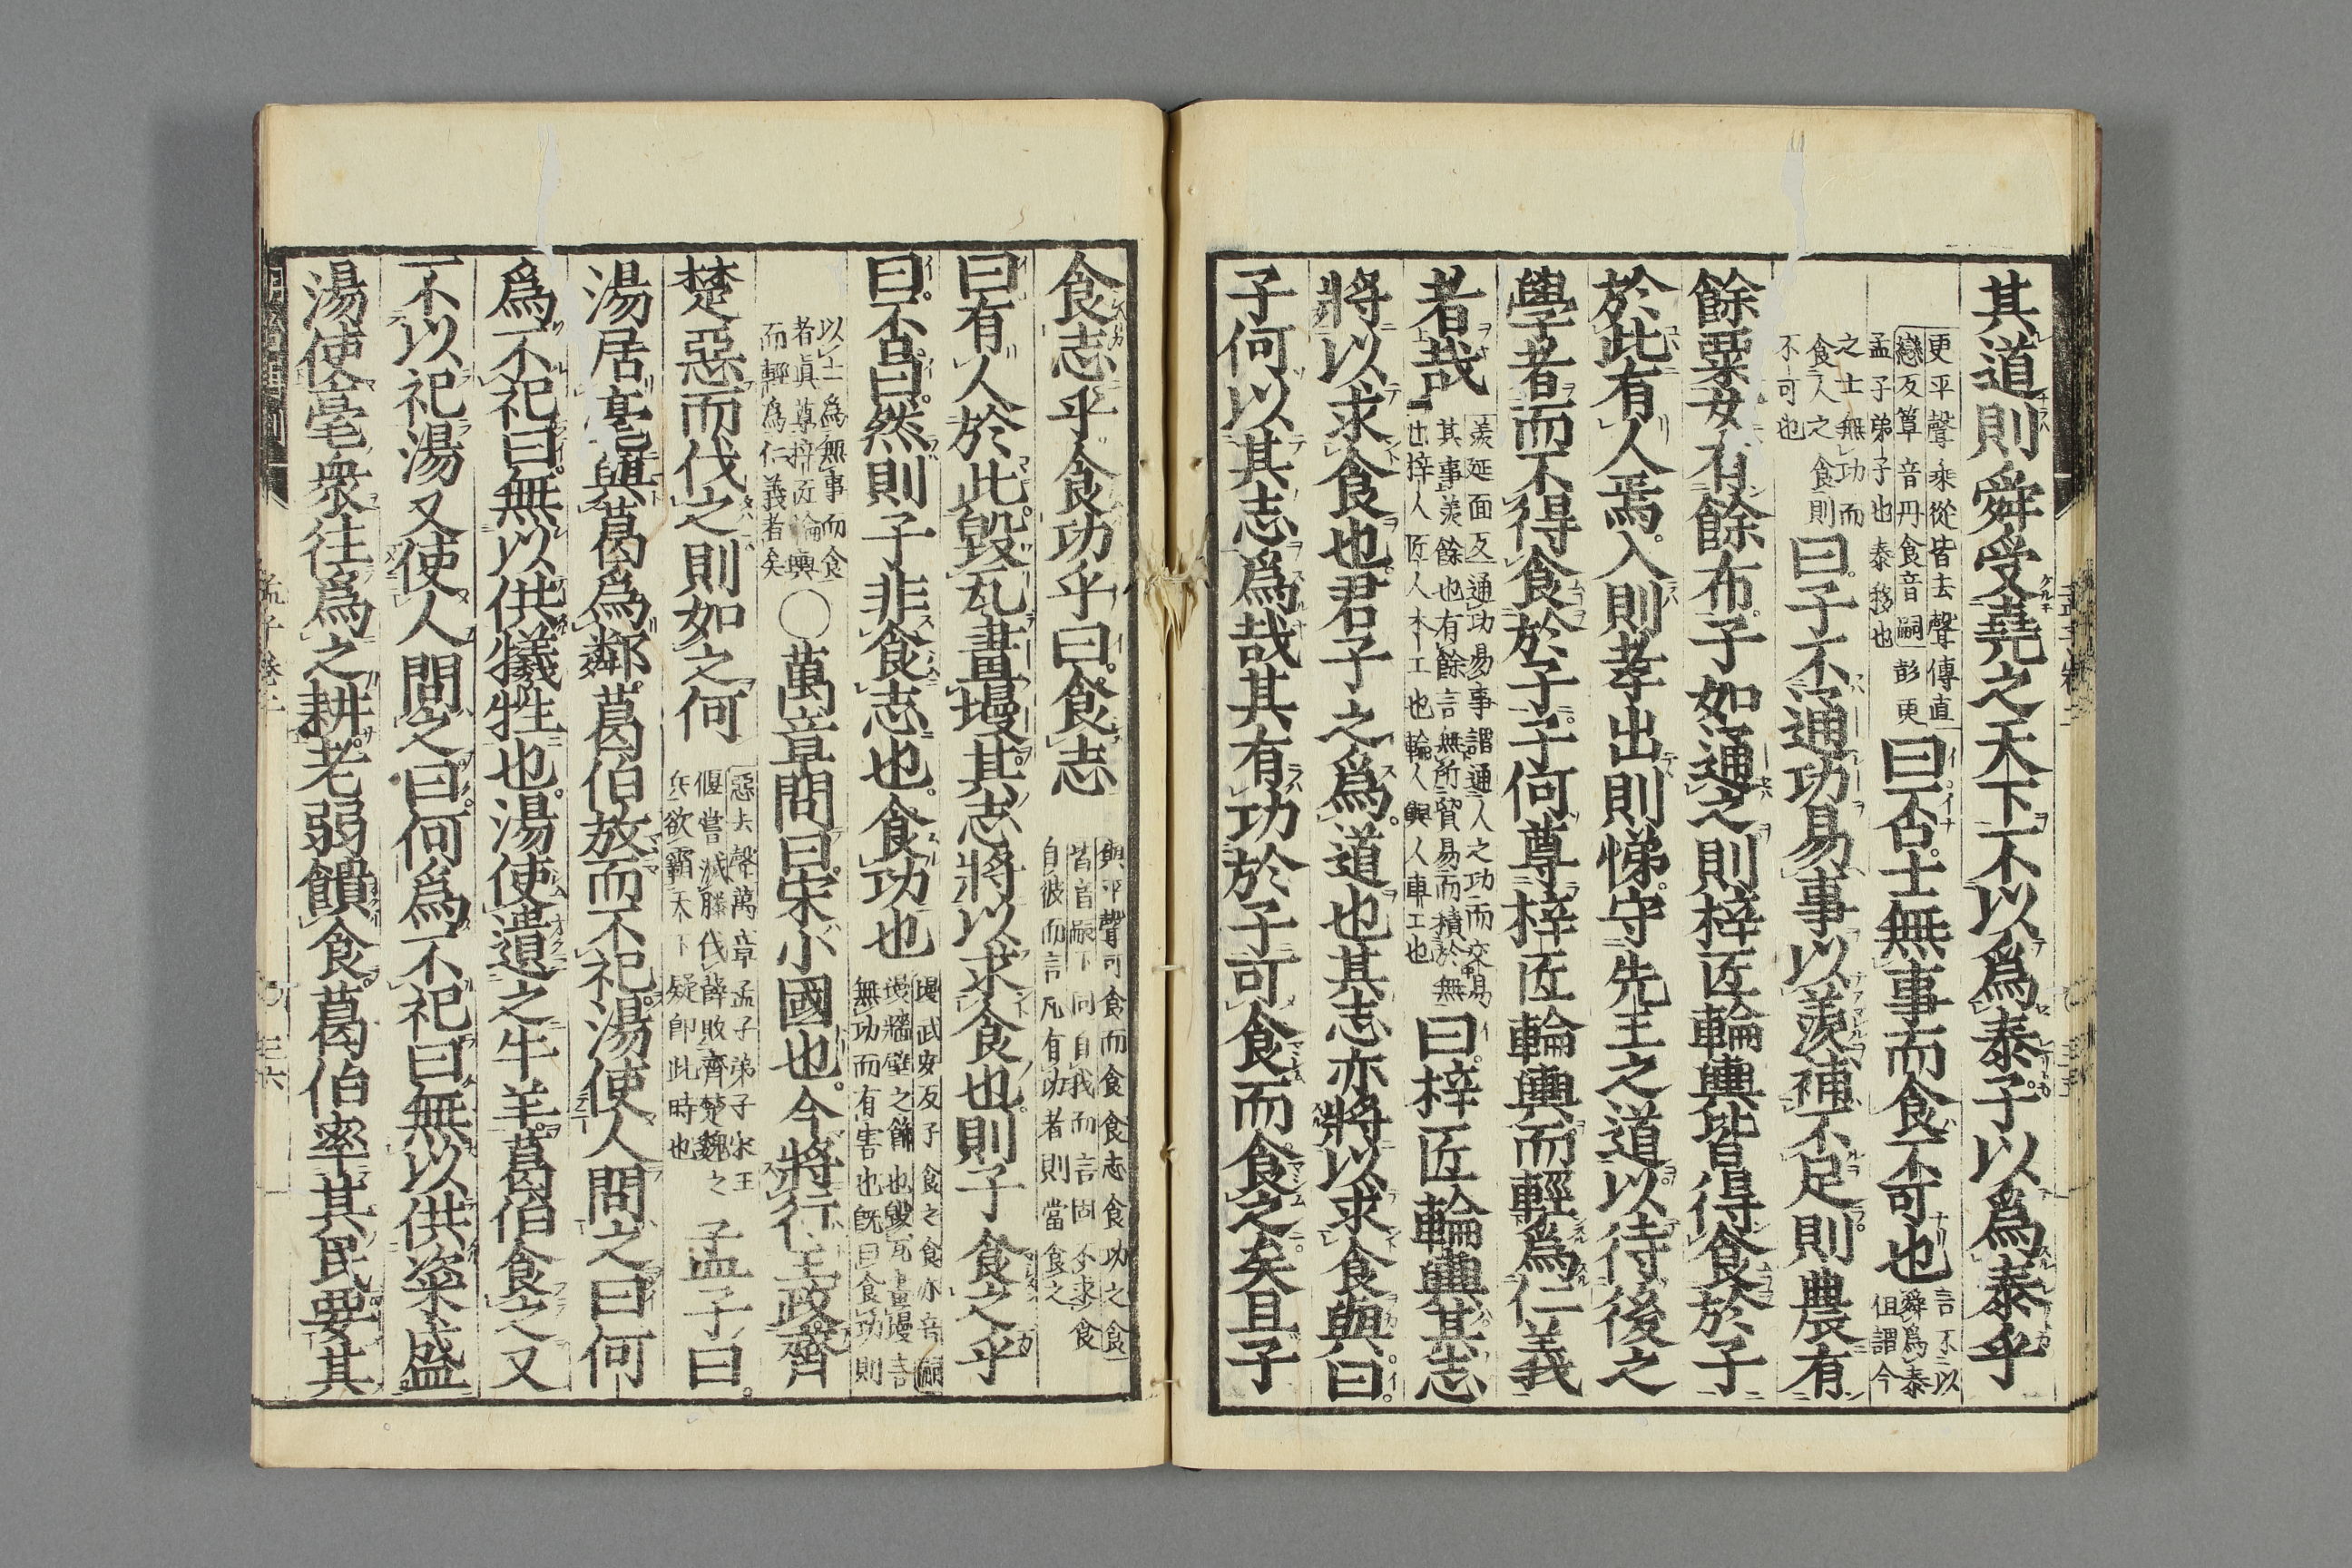 其道則舜受堯之天下不以爲泰子以爲泰乎
更平聲乘從皆去聲傳直
戀反簞音丹食音嗣彭更
孟子弟子也泰侈也
曰否士無事而食不可也
言不以
舜爲泰
但謂今
之士無功而
食人之食則
不可也
曰子不通功易事以羨補不足則農有
餘粟女有餘布子如通之則梓匠輪輿皆得食於子
於此有人焉入則孝出則悌守先王之道以待後之
學者而不得食於子子何尊梓匠輪輿而輕爲仁義
者哉
羨延面反通功易事謂通人之功而交易
其事羨餘也有餘言無所貿易而積於無
也梓人匠人木工也輪人輿人車工也
曰梓匠輪輿其志
將以求食也君子之爲道也其志亦將以求食與曰
子何以其志爲哉其有功於子可食而食之矣且子
食志乎食功乎曰食志
與平聲可食而食食志食功之食
皆音嗣下同自我而言固不求食
自彼而言凡有功者則當食之
曰有人於此毀瓦畫墁其志將以求食也則子食之乎
曰否曰然則子非食志也食功也
墁武安反子食之食亦音嗣
墁牆壁之飾也毀瓦畫墁言
無功而有害也既曰食功則
以士爲無事而食
者眞尊梓匠輪輿
而輕爲仁義者矣
○萬章問曰宋小國也今將行王政齊
楚惡而伐之則如之何
惡去聲萬章孟子弟子宋王
偃嘗滅滕伐薛敗齊楚魏之
兵欲霸天下疑卽此時也
孟子曰
湯居亳與葛爲鄰葛伯放而不祀湯使人問之曰何
爲不祀曰無以供犧牲也湯使遺之牛羊葛伯食之又
不以祀湯又使人問之曰何爲不祀曰無以供粢盛
湯使亳衆往爲之耕老弱饋食葛伯率其民要其
孟子卷二
三六